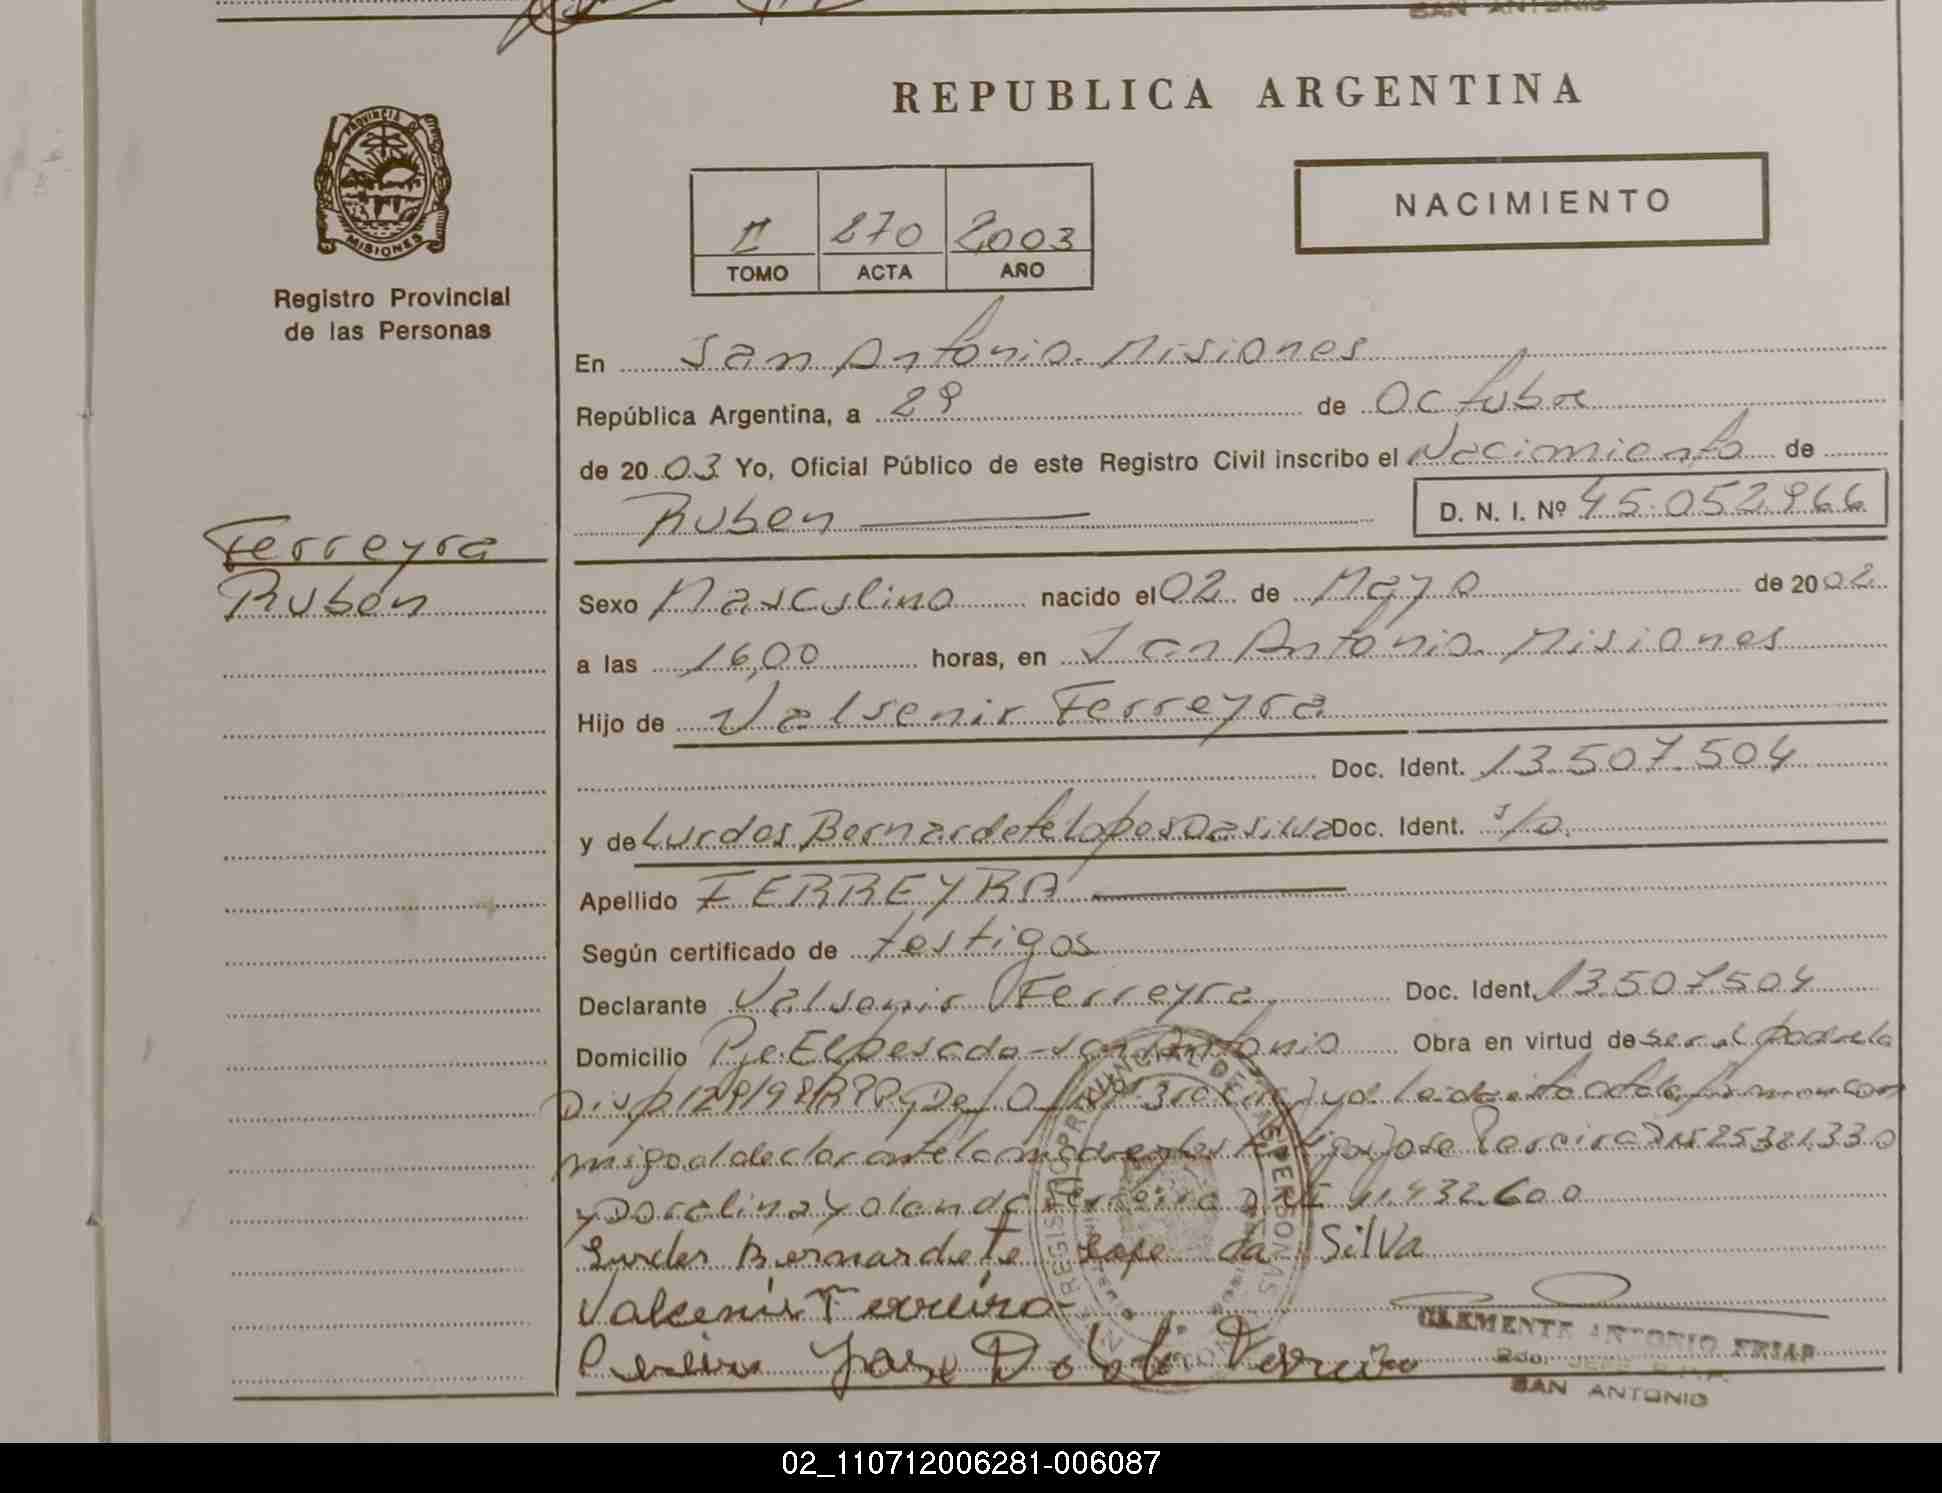 SAN ANTONIO
REPUBLICA ARGENTINA
PROVINCIA DE
MISIONES
Registro Provincial
de las Personas
II 270 2003
TOMO ACTA AÑO
NACIMIENTO
En San Antonio Misiones
República Argentina, a 29 de Octubre
de 2003 Yo, Oficial Público de este Registro Civil inscribo el Nacimiento de
Ruben D. N. I. Nº 45.052.966
Ferreyra
Ruben
Sexo Masculino nacido el 02 de Mayo de 2002
a las 16,00 horas, en San Antonio Misiones
Hijo de Valsenir Ferreyra
Doc. Ident. 13.507.504
y de Lurdes Bernardete Lopes Da silva Doc. Ident. s/D.
Apellido FERREYRA
Según certificado de testigos
Declarante Valsenir Ferreyra Doc. Ident. 13.507504
Domicilio Pje. El pesado - San Antonio Obra en virtud de ser el padre la
Disp 129/98 leida
migo el declarante la madre y los testigos Jose Pereira DNI 25321.330
y Doralina Yolanda Ferreira DNI 11.432.600
Lurdes Bernardete Lope da Silva
Valcenir Ferreira
Pereira Jose Ferreira
CLEMENTE ANTONIO
SAN ANTONIO
02_110712006281-006087